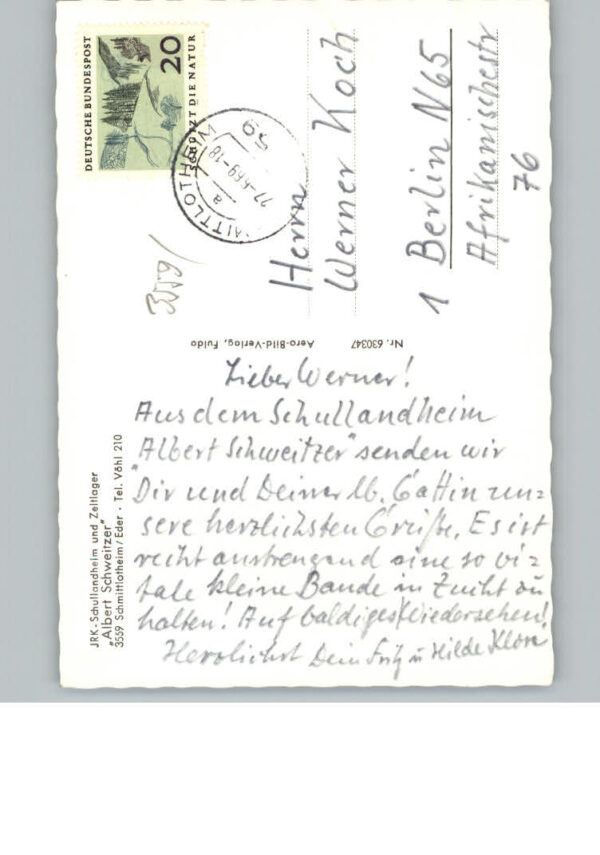 Lieber Werner!
Aus dem Schullandheim
"Albert Schweitzer" senden wir
Dir und Deiner lb. Gattin un=
sere herzlichsten Grüße. Es ist
recht anstrengend eine so vi=
tale kleine Bande in Zucht zu
halten! Auf baldiges Wiedersehen!
Herzlichst Dein Fritz u Hilde
JRK-Schullandheim und Zeltlager
„Albert Schweitzer"
3559 Schmittlotheim/Eder · Tel. Vöhl 210
Nr. 630347 Aero-Bild-Verlag, Fulda
DEUTSCHE BUNDESPOST
20
SCHÜTZT DIE NATUR
59
27.-6.69-18
a
MITTLOTHEIM
3559/
Herrn
Werner Koch
1 Berlin N65
Afrikanischestr
76